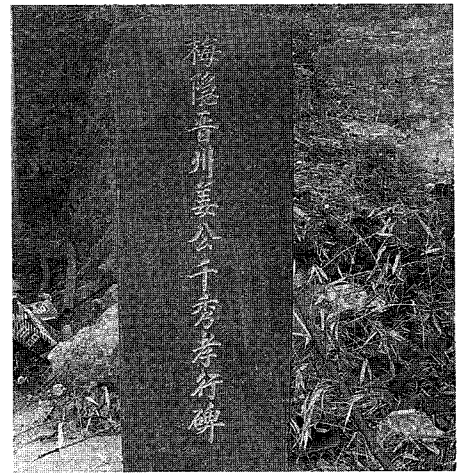 梅隐晋州姜公千秀孝行碑